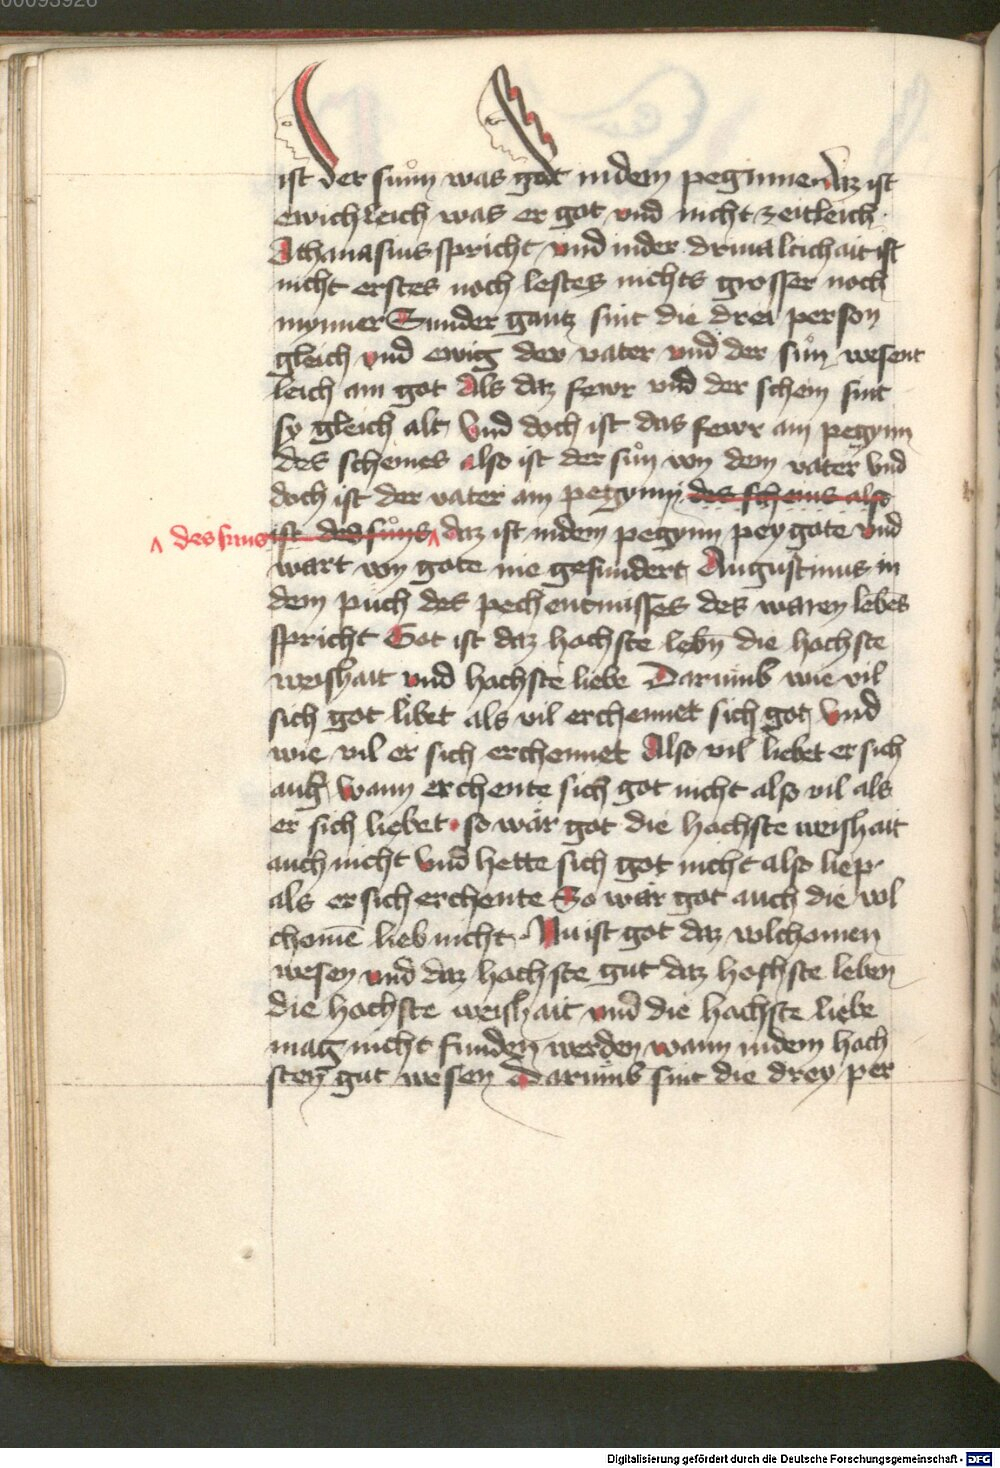 00093926
ist der suͦnn was got in dem peginnen daz ist
ewichleich was er got vnd nicht zeitleich ·
Athanasius spricht vnd in der driualtichait ist
nicht erstes noch lestes nichts grosser noch
mynner Sunder gantz sint die drei person
gleich vnd ewig der vater vnd der suͦn wesent
leich ain got Als daz fewr vnd der schein sint
sy gleich alt Vnd doch ist das fewr ain pegynn
des scheines also ist der suͦn von dem vater vnd
doch ist der vater ain pegynn des scheins also
ist des suͦns daz ist in dem pegynn pey gote vnd
^ des suns
wart von gote nie gesundert Augustinus in
dem puch des pechentnusses des waren lebēs
spricht Got ist daz hochste lebn̄ die hochste
weishait vnd hochste liebe Darumb wie vil
sich got libet als vil erchennet sich got Vnd
wie vil er sich erchennet Also vil liebet er sich
auch Wann erchente sich got nicht also vil als
er sich liebet · so wär got die hochste weishait
auch nicht Vnd hette sich got nicht also liep ·
als er sich erchente So wär got auch die vol
chomē lieb nicht · Nu ist got daz volchomen
wesen vnd daz hochste gut daz hochste leben
die hochste weishait vnd die hochste liebe
mag nicht funden werden wann in dem hoch
sten gut wesen Darumb sint die drey per
Digitalisierung gefördert durch die Deutsche Forschungsgemeinschaft - DFG